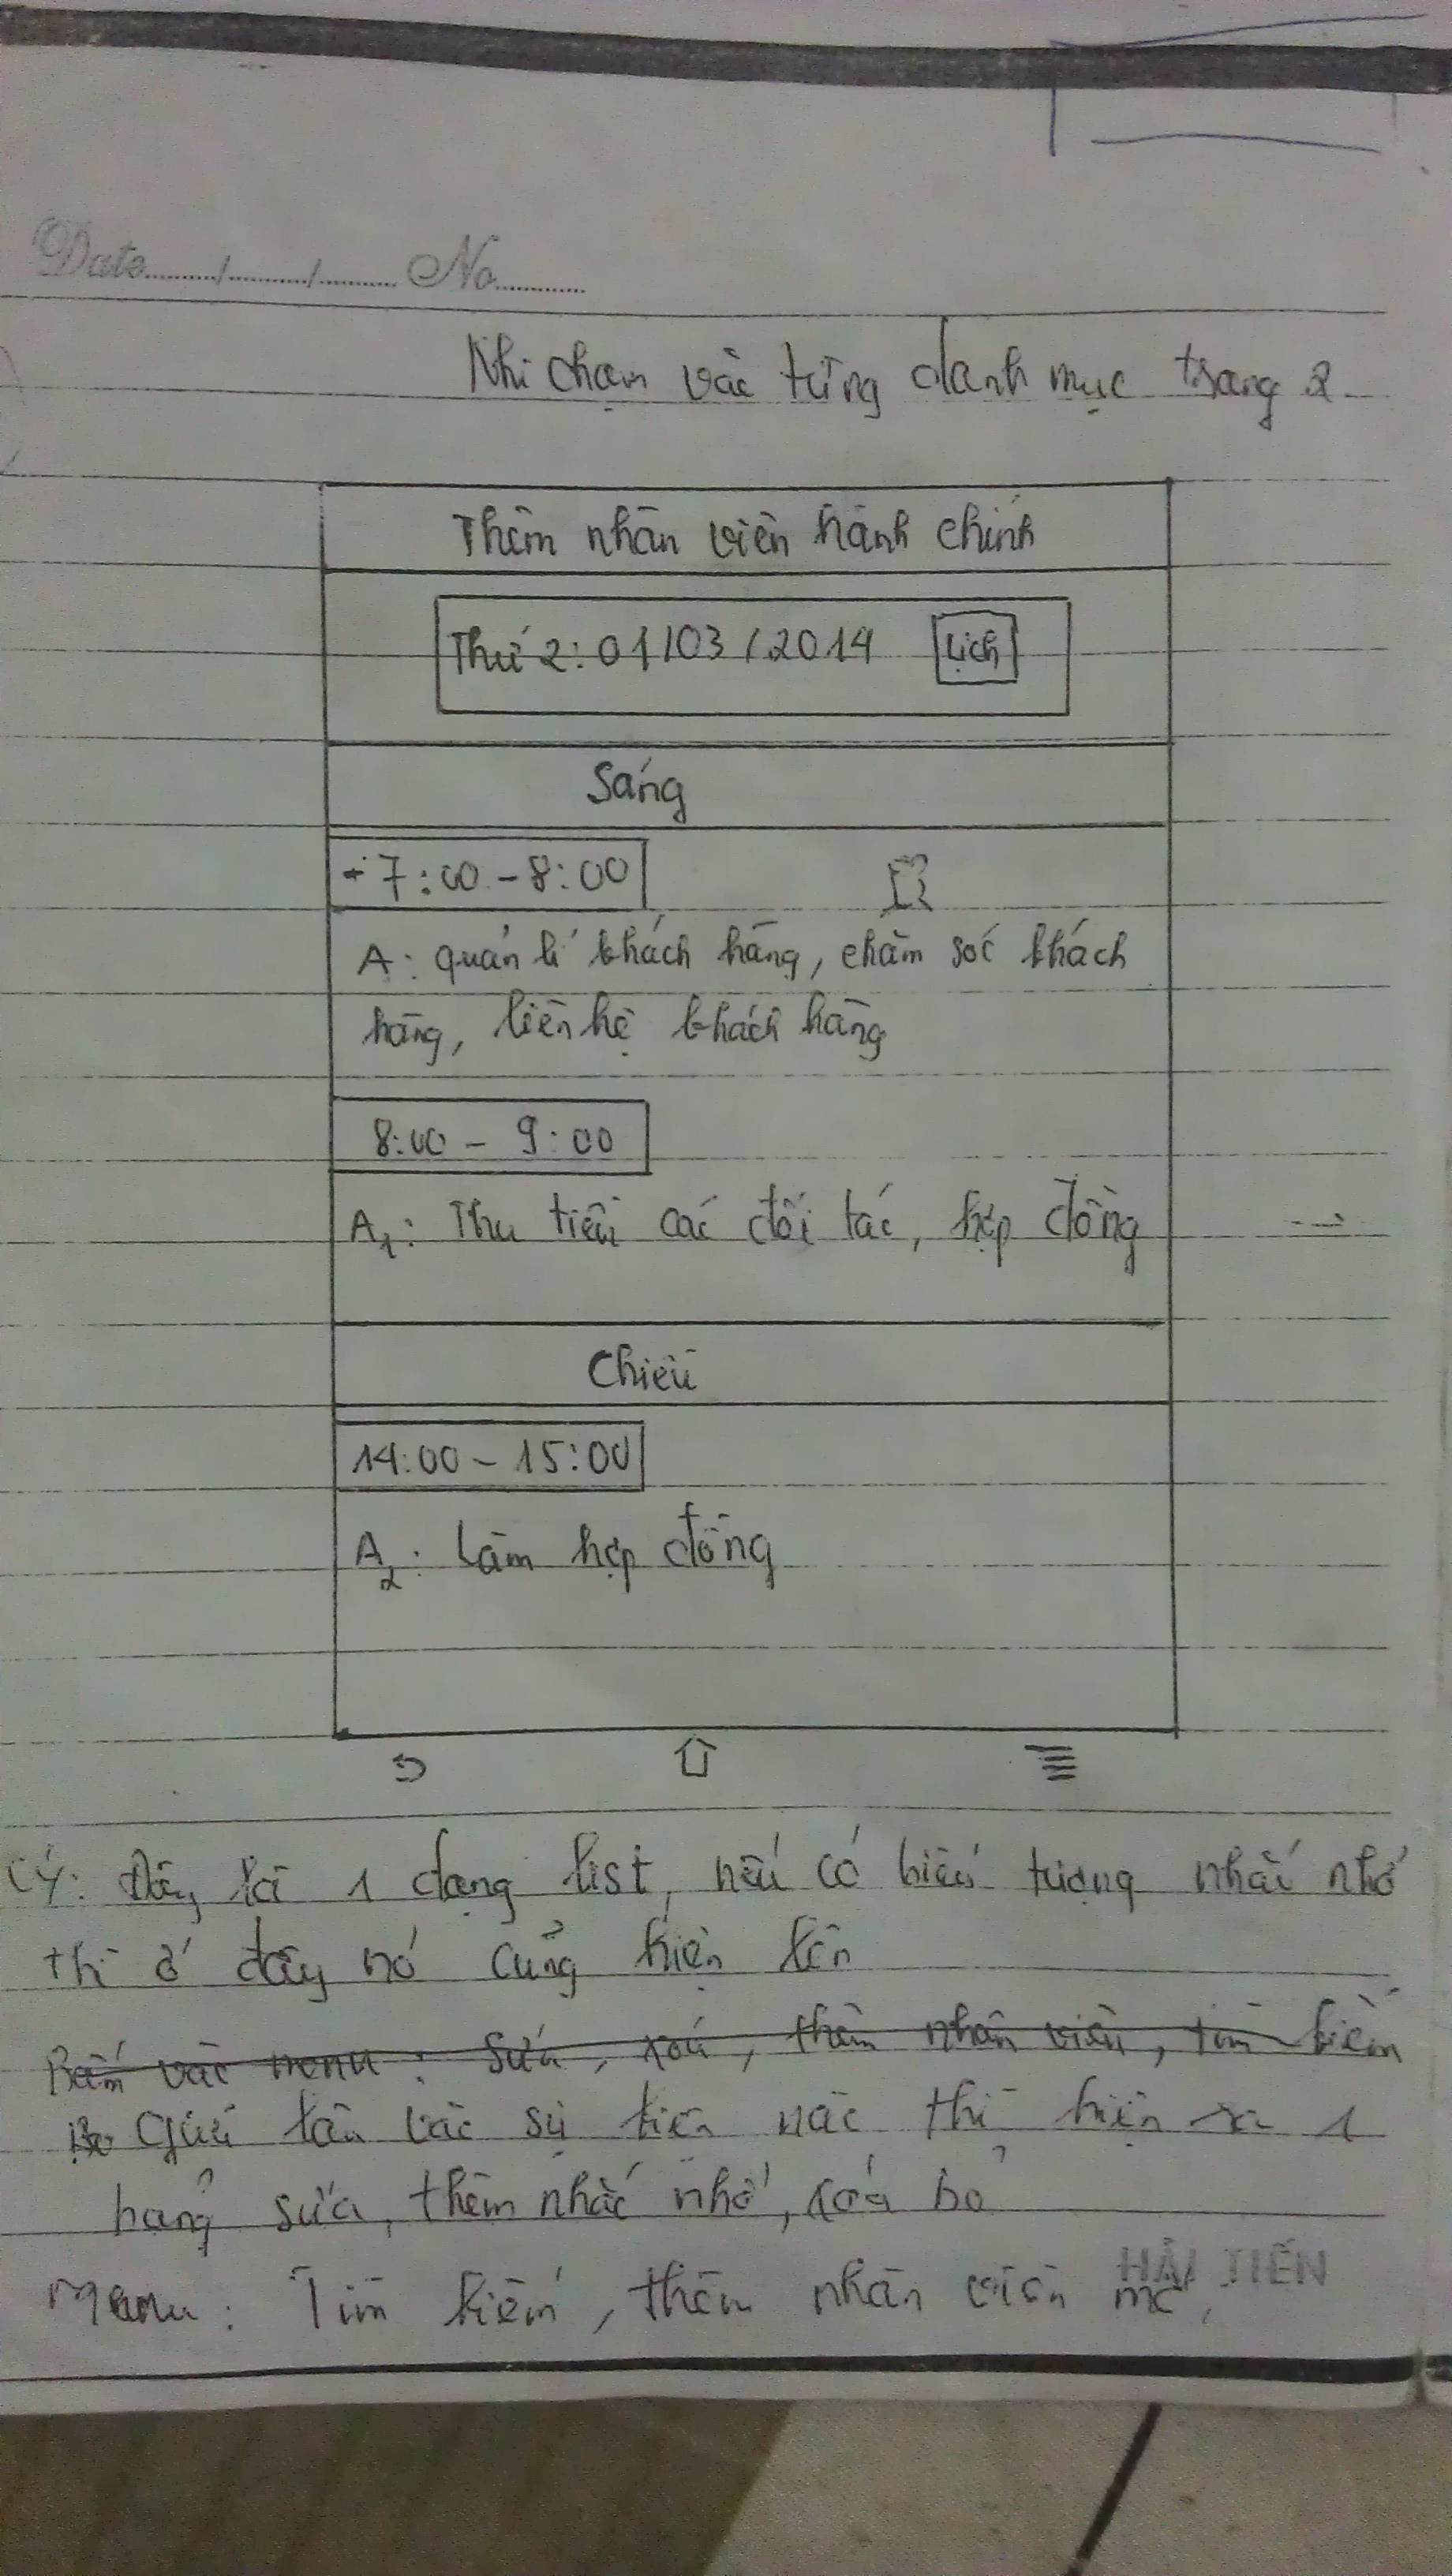 Date......../......../........ No.........
Khi chạm vào từng danh mục trang 2
Thêm nhân viên hành chính
Thứ 2: 01/03/2014 Lịch
Sáng
7:00 - 8:00
A: quản lí khách hàng, chăm sóc khách
hàng, liên hệ khách hàng
8:00 - 9:00
A1: Thu tiền các đối tác, hợp đồng
Chiều
14:00 - 15:00
A2: Làm hợp đồng
Ý: Đây là 1 dạng list, nếu có biểu tượng nhắc nhở
thì ở đây nó cũng hiện lên
Bấm vào menu: sửa, xoá, thêm nhân viên, tìm kiếm
Giữ lâu vào sự kiện nào thì hiện ra 1
bảng sửa, thêm nhắc nhở, xoá bỏ
HẢI TIẾN
Menu: Tìm kiếm, thêm nhân viên mới,